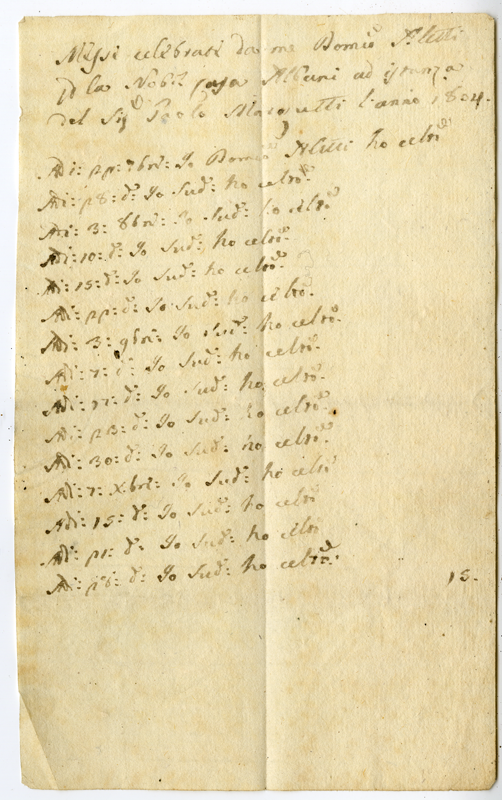 Messe celebrate da me Domco Aletti
p la Nobil Casa Albani ad istanza
del Sigr Paolo l'anno 1804.
Adi: 22: 7bre: Io Domco Aletti ho celto
Adi: 28: do: Io Sudo: ho celto:
Adi: 3: 8bre: Io Sudo: ho celto
Adi: 10: do: Io Sudo: ho celto:
Adi: 15: do: Io Sudo: ho celto:
Adi: 22: do: Io Sudo: ho celto:
Adi: 3: 9bre: Io Sudo: ho celto:
Adi: 7: do: Io Sudo: ho celto:
Adi: 17: do: Io Sudo: ho celto:
Adi: 23: do: Io Sudo: ho celto:
Adi: 30: do: Io Sudo: ho celto:
Adi: 7: Xbre: Io Sudo: ho celto
Adi: 15: do: Io Sudo: ho celto
Adi: 21: do: Io Sudo: ho celto
Adi: 28: do: Io Sudo: ho celto:
15.